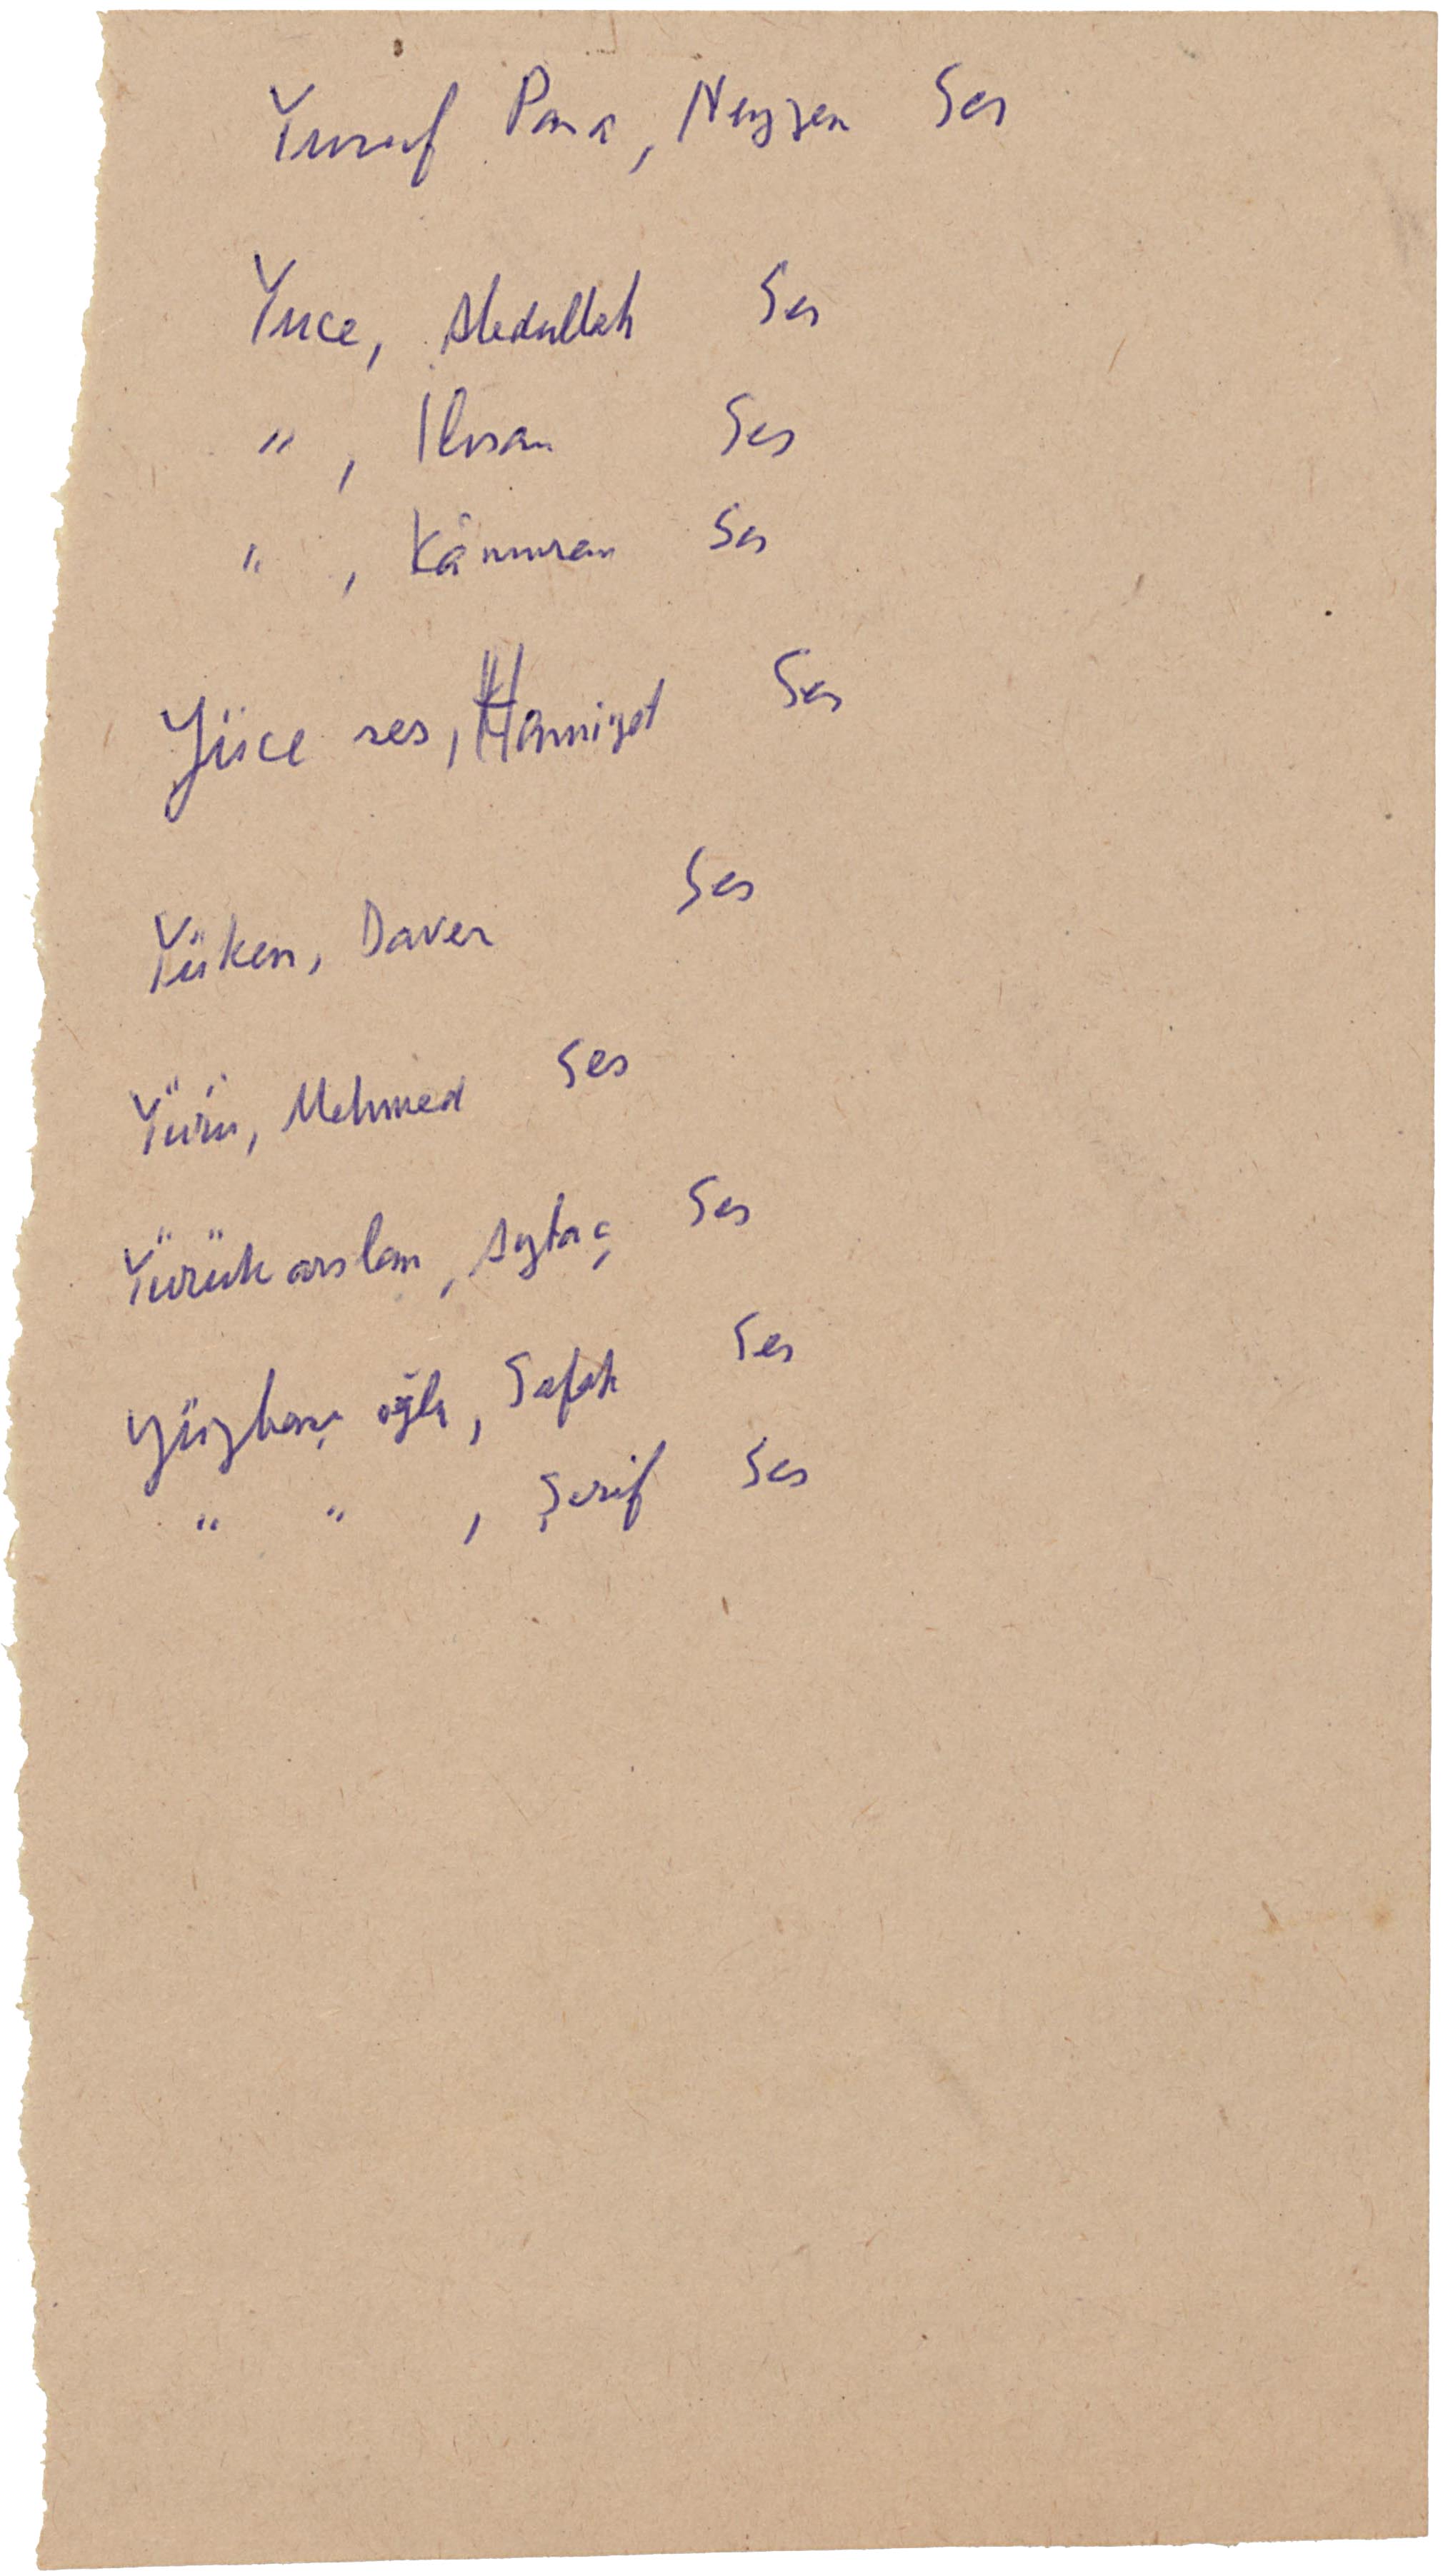 Yusuf Paşa, Neyzen Ses
Yuce, Abdullah Ses
" , İhsan Ses
" , Kâmuran Ses
Yüce ses, Hamiyet Ses
Yüken, Daver Ses
Yürü, Mehmed Ses
Yürük arslan, Aytaç Ses
Yüzbaşı oğlu, Safak Ses
" " , Şerif Ses